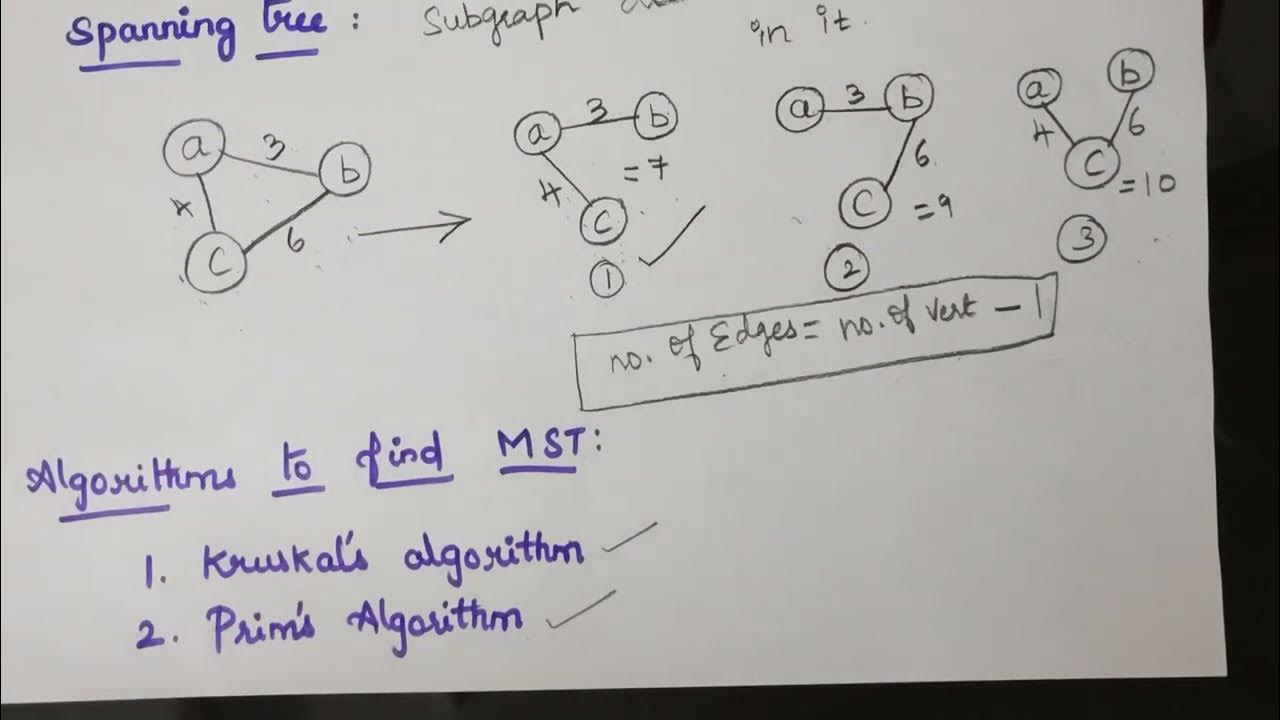 Spanning tree : Subgraph
in it.
a 3 b 4 c 6
a 3 b 4 c = 7
1
a 3 b 6 c = 9
2
a b 4 6 c = 10
3
no. of Edges = no. of vert - 1
Algorithms to find MST:
1. Kruskal's algorithm
2. Prim's Algorithm